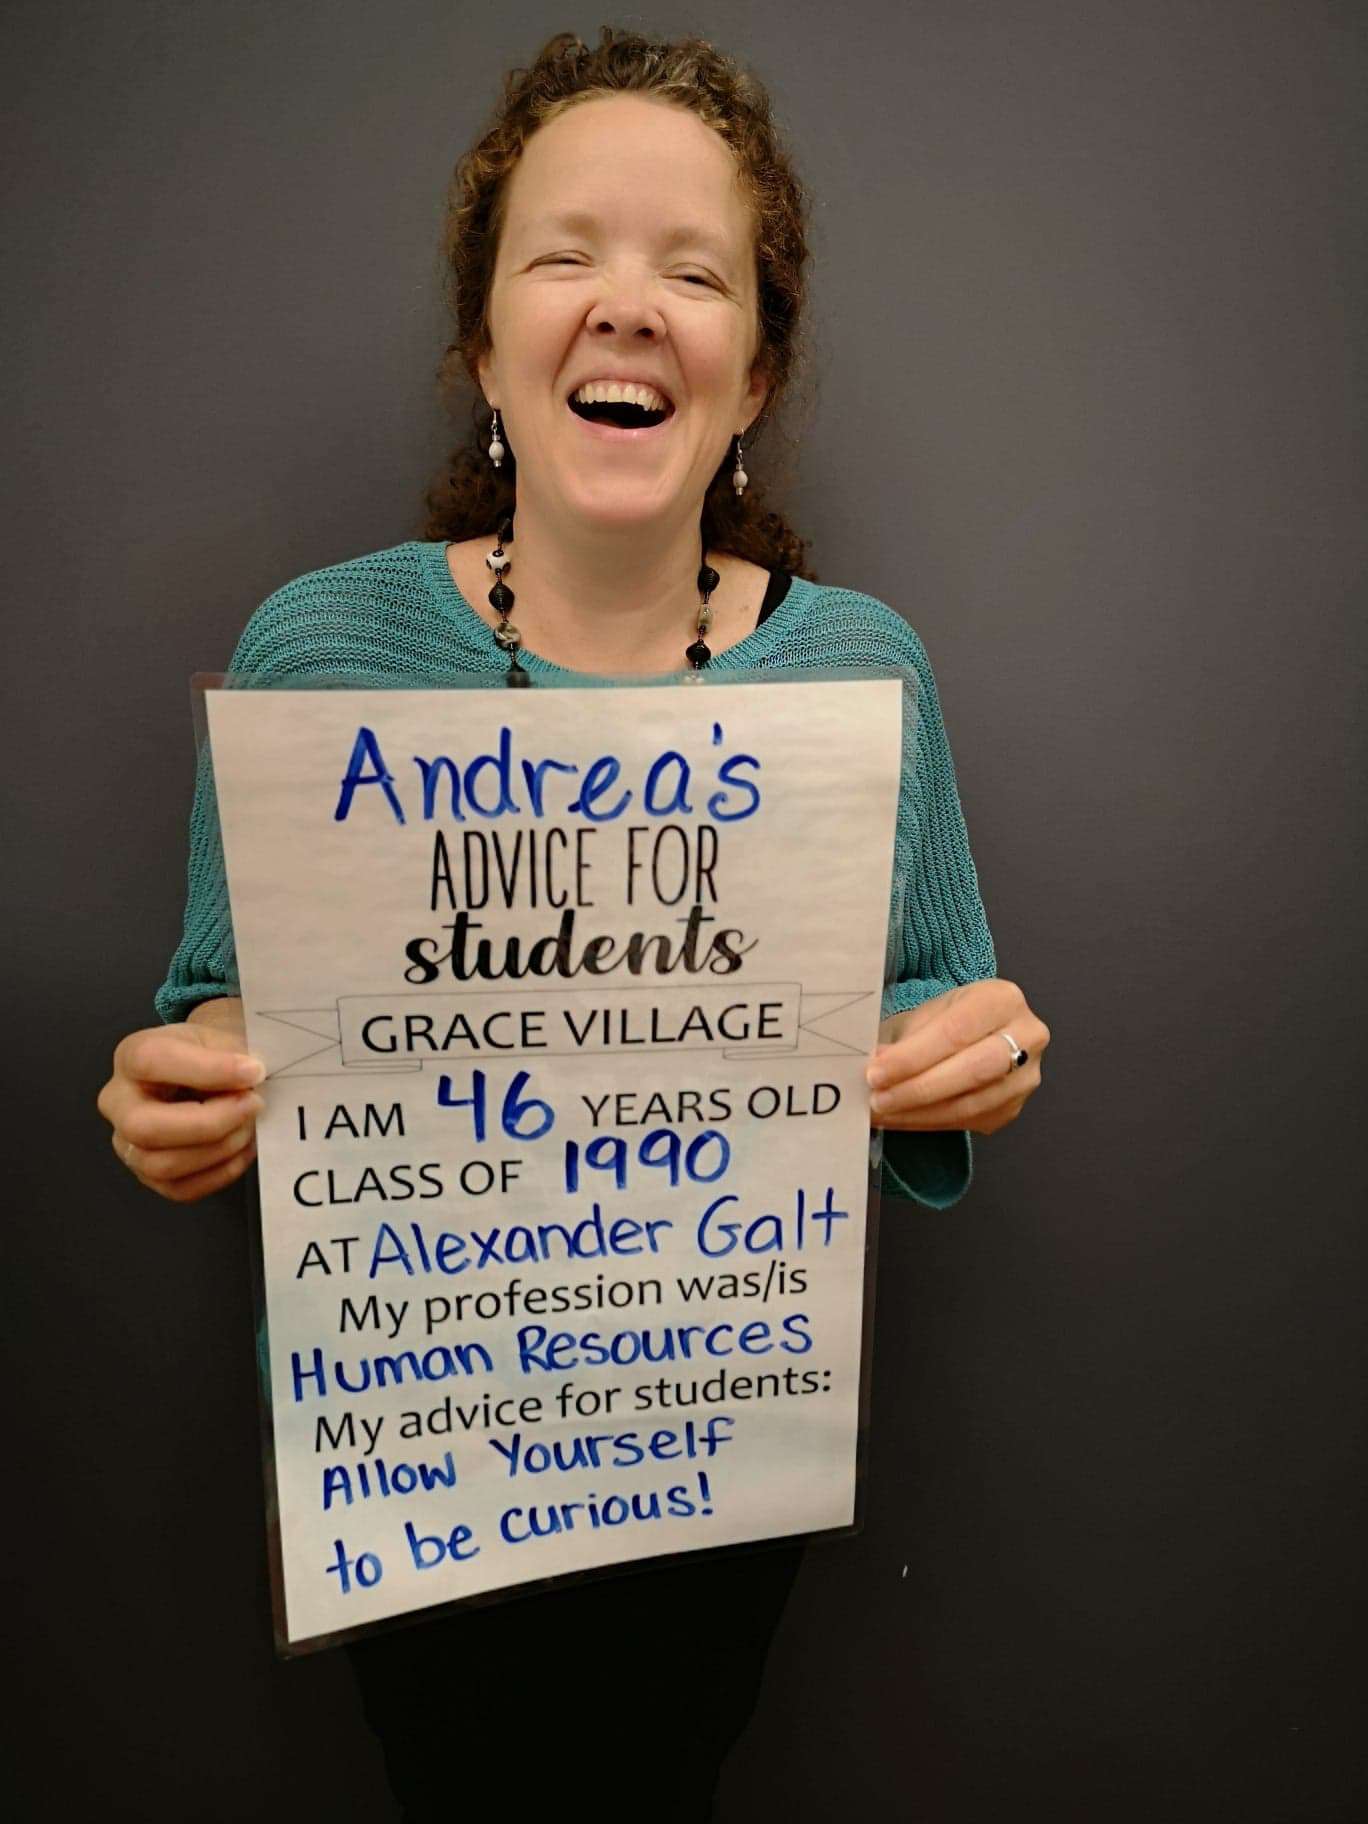 Andrea's
ADVICE FOR
students
GRACE VILLAGE
I AM 46 YEARS OLD
CLASS OF 1990
AT Alexander Galt
My profession was/is
Human Resources
My advice for students:
Allow Yourself
to be curious!